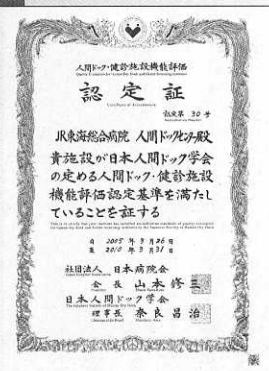 人間ドック・健診施設機能評価
認定証
認定第 30 号
JR東海総合病院 人間ドックセンター殿
貴施設が日本人間ドック学会
の定める人間ドック・健診施設
機能評価認定基準を満たし
ていることを証する
自 2005 年 3月26日
至 2010 年 3月31日
社団法人 日本病院会
会長 山本修三
日本人間ドック学会
理事長 奈良昌治